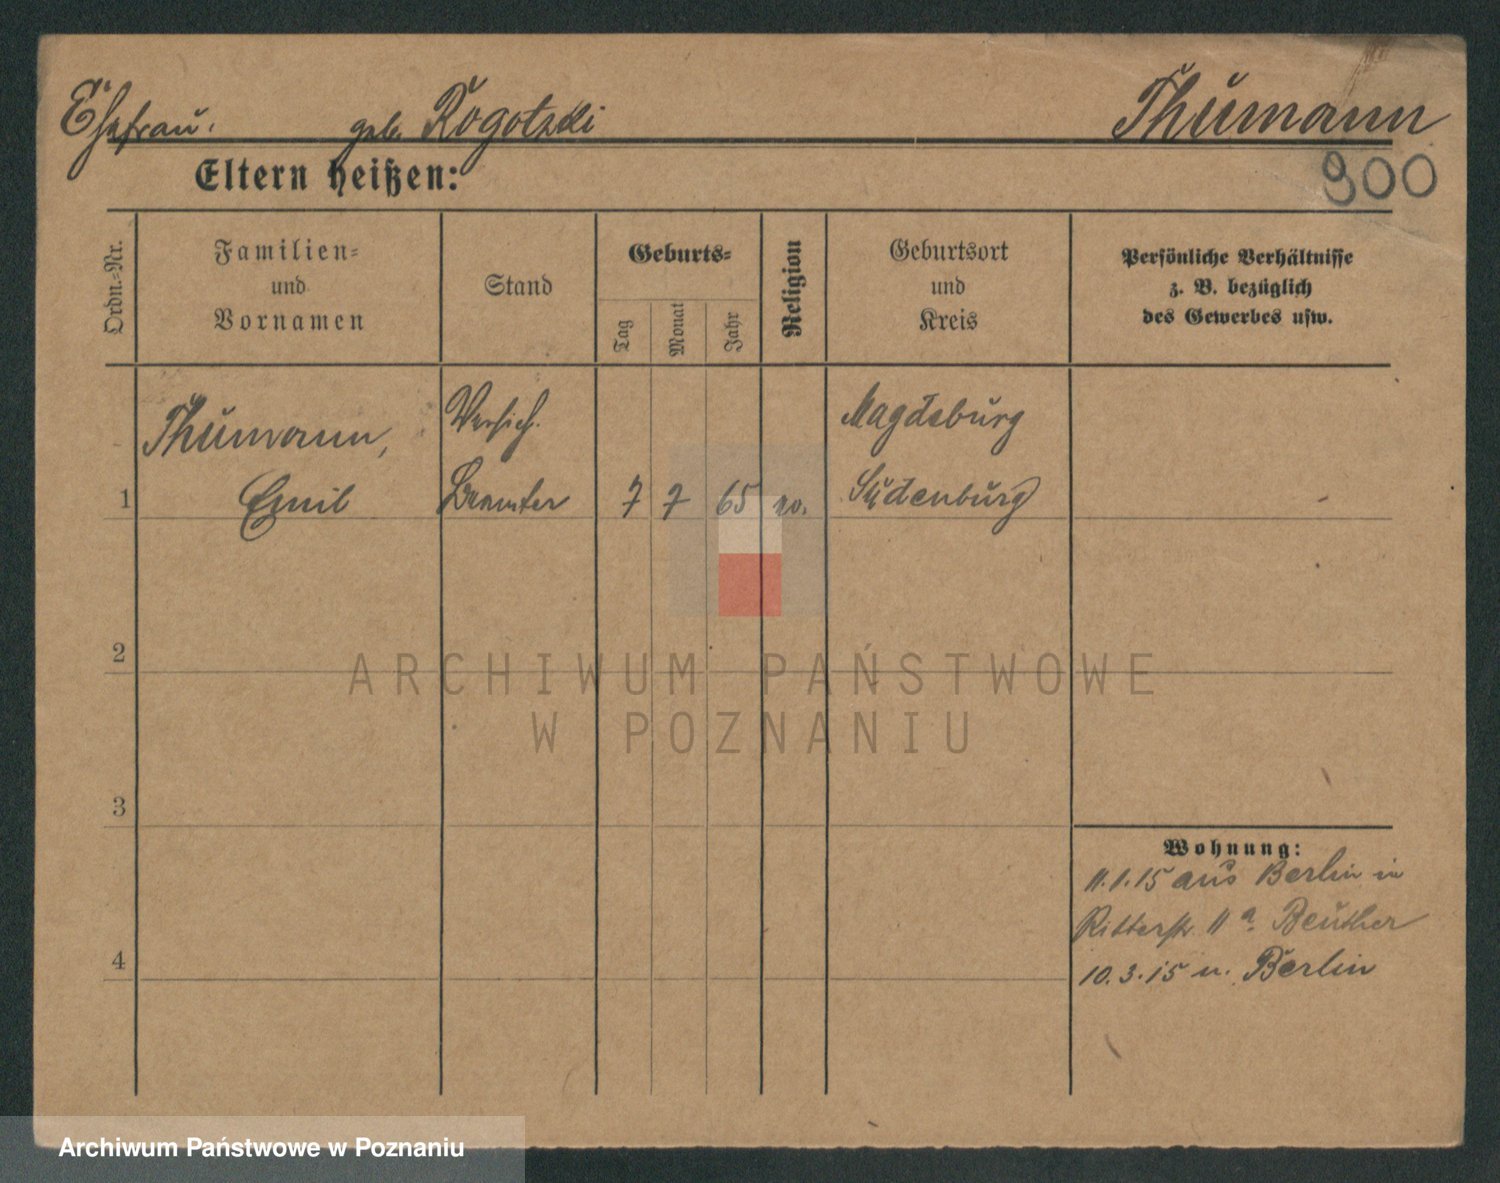 Ehefrau. geb. Rogotzki Thumann
900
Eltern heißen:
Ordn.=Nr.
Familien=
und
Vornamen
Stand
Geburts=
Tag
Monat
Jahr
Religion
Geburtsort
und
Kreis
Persönliche Verhältnisse
z. B. bezüglich
des Gewerbes usw.
Thumann, Versich. Magdeburg
1 Emil Beamter 7 7 65 Sudenburg
2
3
4
Wohnung:
11.1.15 aus Berlin in
Ritterstr. 11 a. Beuther
10.3.15 n. Berlin
ARCHIWUM PAŃSTWOWE
W POZNANIU
Archiwum Państwowe w Poznaniu